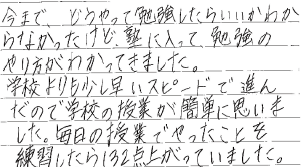 今まで、どうやって勉強したらいいかわか
らなかったけど、塾に入って、勉強の
やり方がわかってきました。
学校よりも少し早いスピードで進ん
だので学校の授業が簡単に思いま
した。毎日の授業でやったことを
練習したら132点上がっていました。